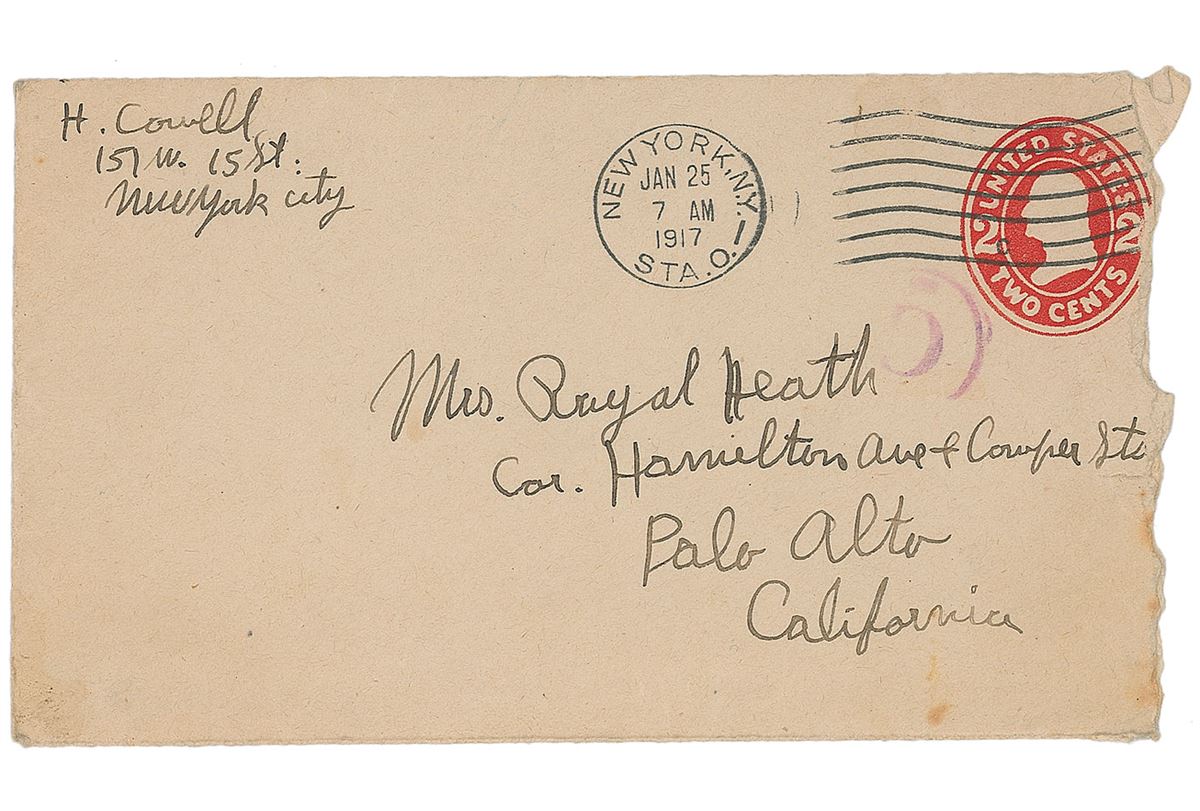 H. Cowell
157 W. 15 St.
New York city
NEW YORK, N.Y.
JAN 25
7 AM
1917
STA. O.
UNITED STATES
2 2
C
TWO CENTS
Mrs. Royal Heath
Cor. Hamilton Ave & Cowper Sts
Palo Alto
California